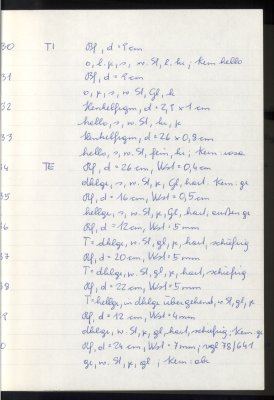 30 TI Bf, d = ? cm
o, l. k, s, w. St, l. hi; Kern hello
31 Bf, d = 9 cm
o, k, s, w. St, Gl, h
32 Henkelfrgm, d = 2,9 x 1 cm
hello, s, w. St, hi, k
33 Henkelfrgm, d = 26 x 0,8 cm
hello, s, w. St, fein, hi; Kern: rosa
TE Rf, d = 26 cm, Wst = 0,4 cm
dklgr, s, w. St, k, Gl, hart. Kern: gr
35 Rf, d = 16 cm, Wst = 0,5 cm
hellgr, s, w. St, k, Gl, hart, außen gr
Rf, d = 12 cm, Wst = 5 mm
T = dklgr, w. St, gl, k, hart, schiefrig
37 Rf, d = 20 cm, Wst = 5 mm
T = dklgr, w. St, gl, k, hart, schiefrig
38 Rf, d = 22 cm, Wst = 5 mm
T = hellgr, in dklgr übergehend, w. St, gl, k
Rf, d = 12 cm, Wst = 4 mm
dklgr, w. St, k, gl, hart, schiefrig; Kern: gr
0 Rf, d = 24 cm, Wst = 7 mm; vgl 78/641
gr, w. St, k, gl; Kern: